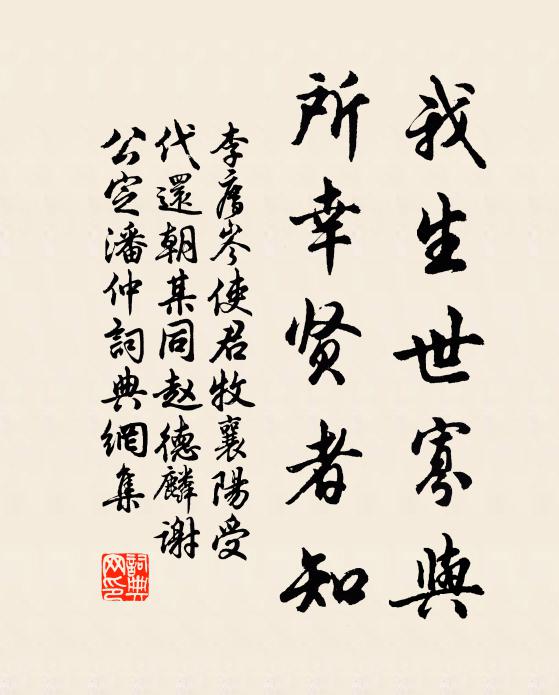 我生世寡與
所幸贤者知
李廌岑使君牧襄陽受
代還朝某同赵德麟謝
公定潘仲詞典網集
詞典
网印